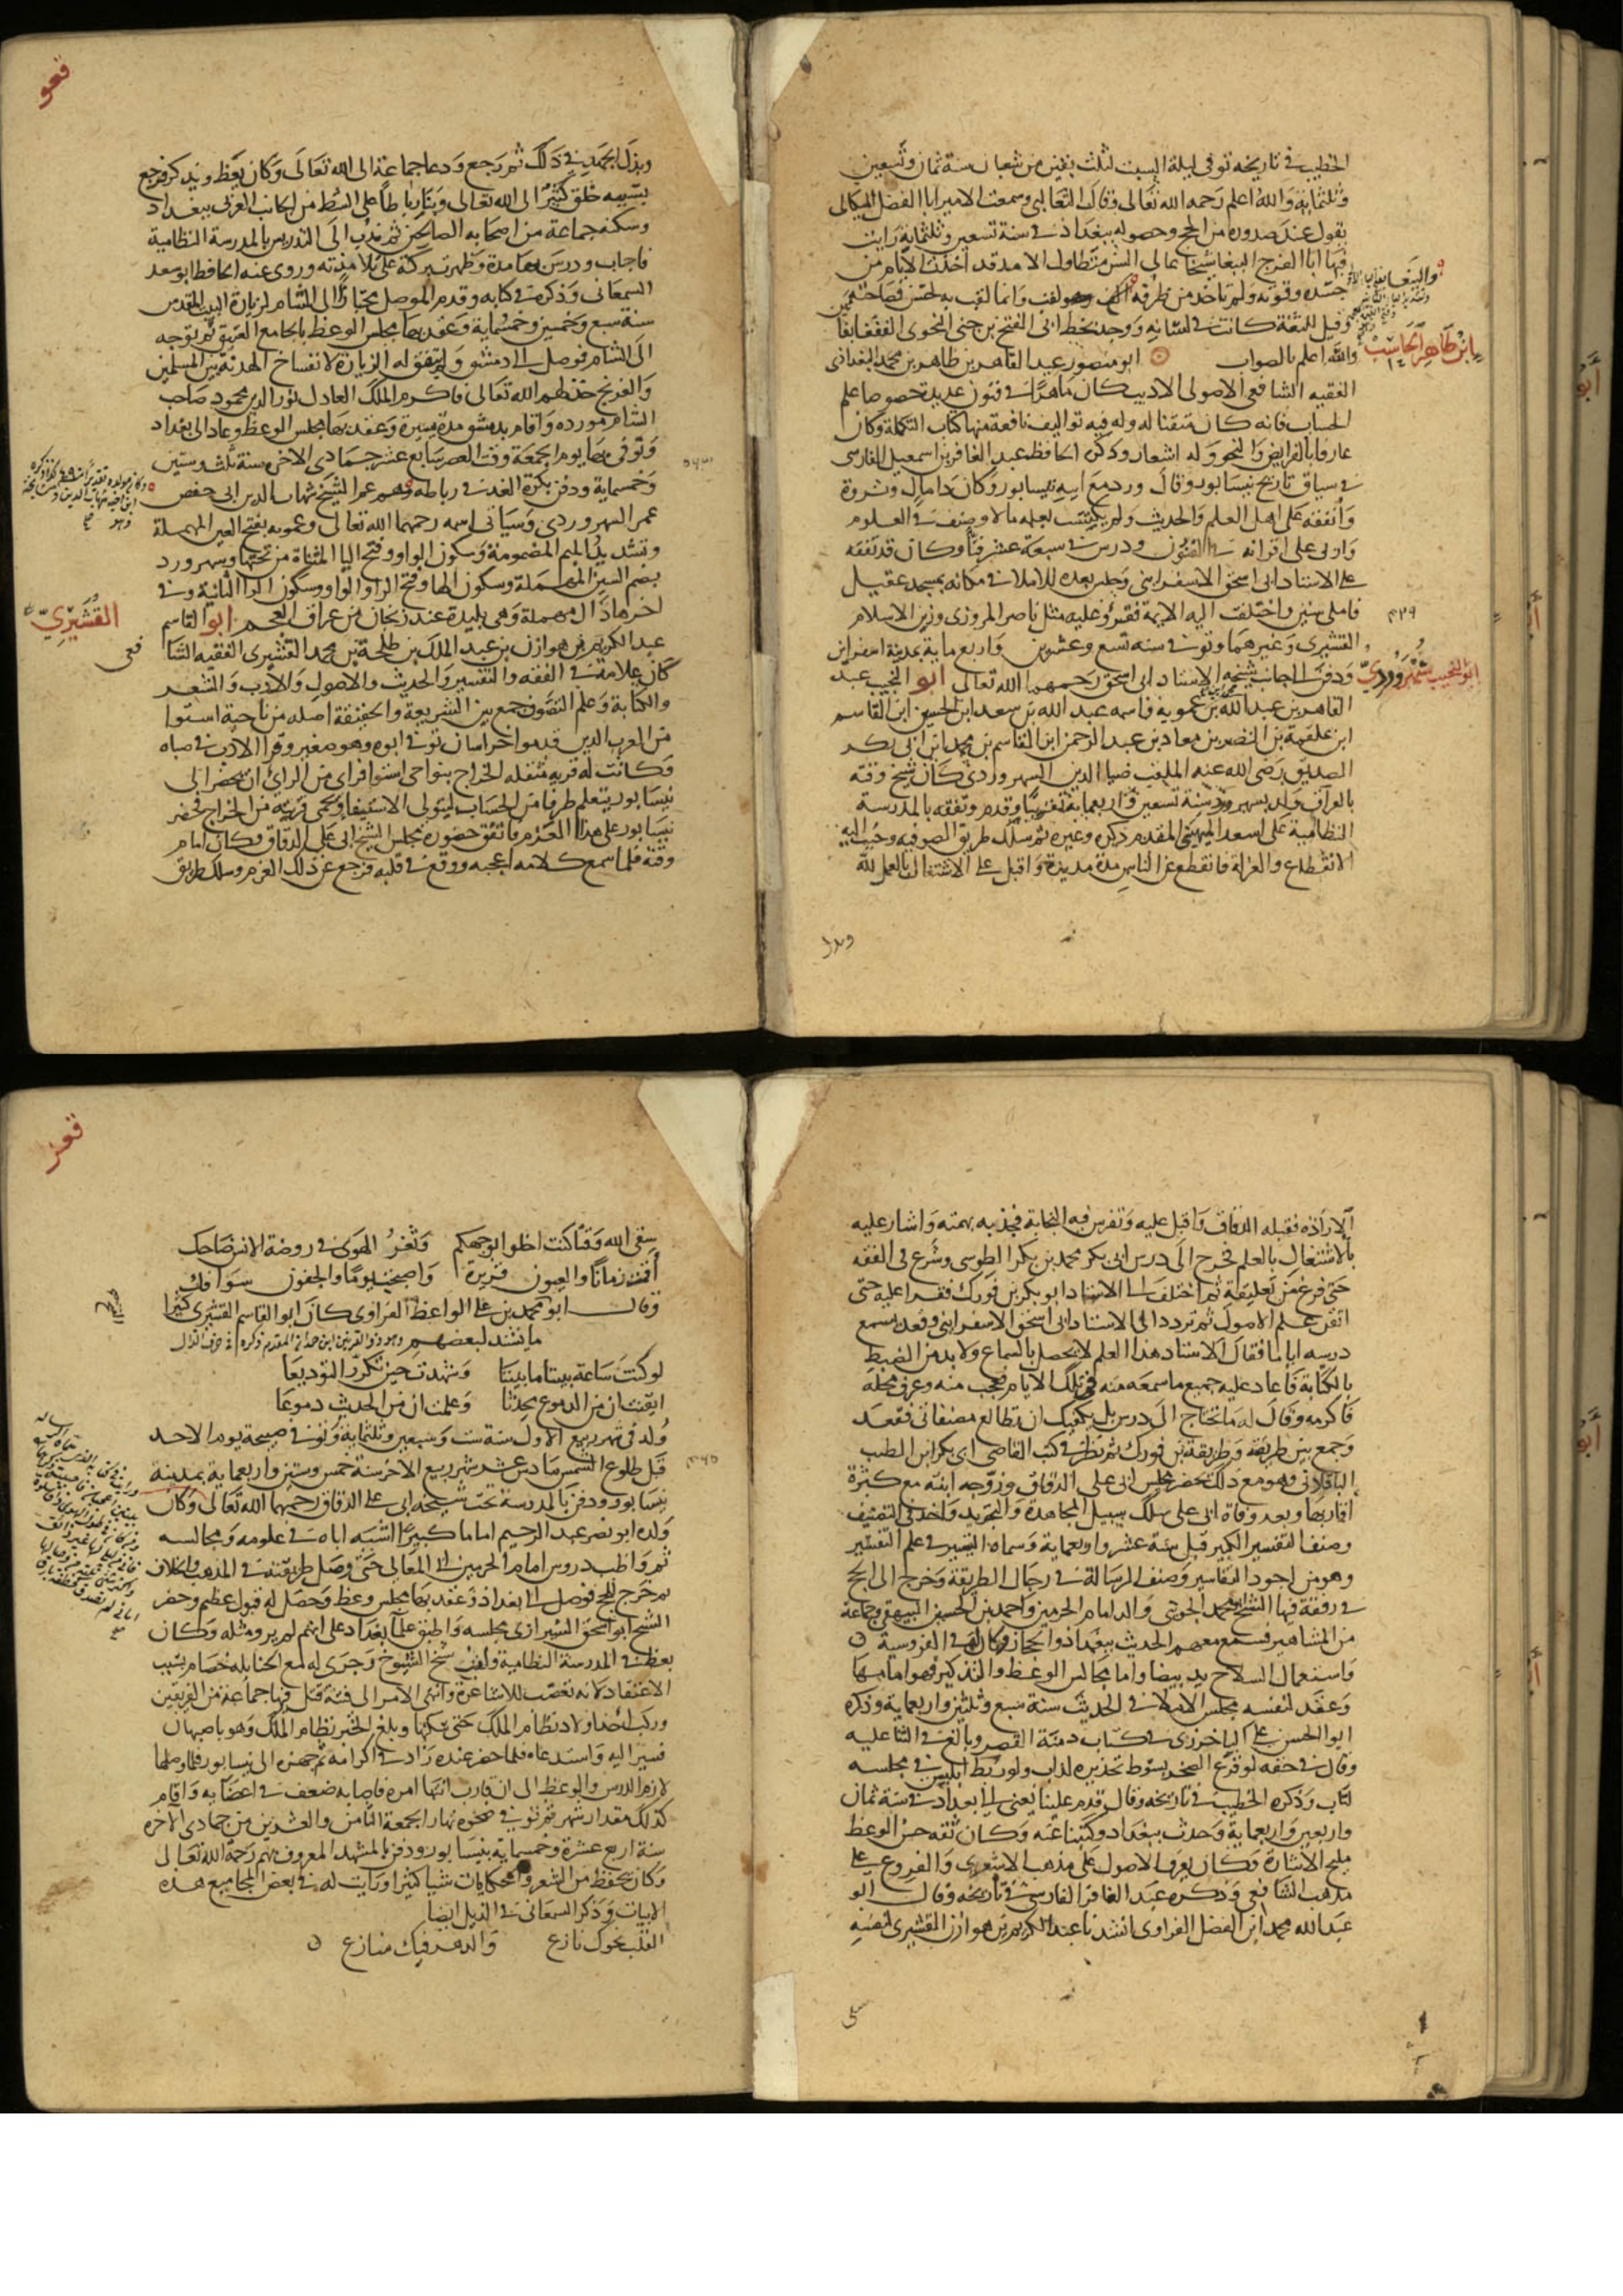 الخطيب في تاريخه توفي ليلة السبت لثلاث بقين من شعبان سنة ثمان وتسعين
وثلثمائة والله اعلم رحمه الله تعالى وقال الثعالبي وسمعت الامير ابا الفضل الميكالي
يقول عند صدوره من الحج وحصوله ببغداد في سنة تسعين وثلثماية رايت
فيها ابا الفرج الببغا شيخا عالي السن متطاول الامد قد اخذت الايام من
جسده وقوته ولم تاخذ من ظرفه وانما لقب به لحسن فصاحته
وقيل للثغة كانت في لسانه ووجد بخط ابي الفتح بن جني النحوي الففغا بفا
والله اعلم بالصواب ابو منصور عبد القاهر بن طاهر بن محمد البغدادي
ابن طاهر الحاسب
الفقيه الشافعي الاصولي الاديب كان ماهرا في فنون عديدة خصوصا علم
الحساب فانه كان متقنا له وله فيه تواليف نافعة منها كتاب التكملة وكان
عارفا بالفرايض والنحو وله اشعار وذكره الحافظ عبد الغافر بن اسمعيل الفارسي
في سياق تاريخ نيسابور وقال ورد مع ابيه نيسابور وكان ذا مال وثروة
وانفقه على اهل العلم والحديث ولم يكتسب بعلمه مالا وصنف في العلوم
واربى على اقرانه في الفنون ودرس في سبعة عشر فنا وكان قد تفقه
على الاستاد ابي اسحق الاسفرايني وجلس بعده للاملا في مكانه بمسجد عقيل
فاملى سنين واختلف اليه الايمة فقروا عليه مثل ناصر المروزي وزين الاسلام
القشيري وغيرهما وتوفي في سنة تسع وعشرين واربع ماية بمدينة اسفراين
ودفن الى جانب شيخه الاستاد ابي اسحق رحمهما الله تعالى ابو النجيب عبد
ابو النجيب سهروردي
القاهر بن عبد الله بن عمويه واسمه عبد الله بن سعد ابن الحسين ابن القاسم
ابن علقمة بن النضر بن معاد بن عبد الرحمن ابن القاسم بن محمد ابن ابي بكر
الصديق رضي الله عنه الملقب ضيا الدين السهروردي كان شيخ وقته
بالعراق ولد بسهرورد سنة تسعين واربعماية تقريبا وقدم وتفقه بالمدرسة
النظامية على اسعد الميهني المقدم ذكره وغيره ثم سلك طريق الصوفيه وحبب اليه
الانقطاع والعزلة فانقطع عن الناس مدة مديدة واقبل على الاشتغال بالعمل لله
وبذل
وبذل الجهد في ذلك ثم رجع ودعا جماعة الى الله تعالى وكان يعظ ويذكر فرجع
بسببه خلق كثير الى الله تعالى وبنا رباطا على الشط من الجانب الغربي ببغداد
وسكنه جماعة من اصحابه الصالحين ثم ندب الى التدريس بالمدرسة النظامية
فاجاب ودرس بها مدة وظهرت بركته على تلامذته وروى عنه الحافظ ابو سعد
السمعاني وذكره في كتابه وقدم الموصل مجتازا الى الشام لزيارة البيت المقدس
سنة سبع وخمسين وخمسماية وعقد بها مجلس الوعظ بالجامع العتيق ثم توجه
الى الشام فوصل الى دمشق ولم يتفق له الزيارة لانفساخ الهدنة بين المسلمين
والفرنج خذلهم الله تعالى فاكرم الملك العادل نور الدين محمود صاحب
الشام مورده واقام بدمشق مدة يسيرة وعقد بها مجلس الوعظ وعاد الى بغداد
وتوفي بها يوم الجمعة وقت العصر سابع عشر جمادى الاخر سنة ثلث وستين
وخمسماية ودفن بكرة الغد في رباطه وهو عم الشيخ شهاب الدين ابي حفص
عمر السهروردي وسياتي اسمه رحمهما الله تعالى وعمويه بفتح العين المهملة
وتشديد الميم المضمومة وسكون الواو وفتح اليا المثناة من تحتها وسهرورد
بضم السين المهملة وسكون الها وفتح الرا والواو وسكون الرا الثانية وفي
اخرها دال مهملة وهي بليدة عند زنجان من عراق العجم ابو القاسم
القشيري
عبد الكريم بن هوازن بن عبد الملك بن طلحة بن محمد القشيري الفقيه الشا
فعي
كان علامة في الفقه والتفسير والحديث والاصول والادب والشعر
والكتابة وعلم التصوف جمع بين الشريعة والحقيقة اصله من ناحية استوا
من العرب الذين قدموا خراسان توفي ابوه وهو صغير وقرا الادب في صباه
وكانت له قرية مثقلة الخراج بنواحي استوا فراى من الراي ان يحضر الى
نيسابور يتعلم طرفا من الحساب ليتولى الاستيفا ويحمي قريته من الخراج فحضر
نيسابور على هذا العزم فاتفق حضوره مجلس الشيخ ابي علي الدقاق وكان امام
وقته فلما سمع كلامه اعجبه ووقع في قلبه فرجع عن ذلك العزم وسلك طريق
الارادة فقبله الدقاق واقبل عليه وتفرس فيه النجابة فجذبه بهمته واشار عليه
بالاشتغال بالعلم فخرج الى درس ابي بكر محمد بن بكر الطوسي وشرع في الفقه
حتى فرغ من تعليقه ثم اختلف الى الاستاد ابو بكر بن فورك فقرا عليه حتى
اتقن علم الاصول ثم تردد الى الاستاد ابي اسحق الاسفرايني وقعد يسمع
درسه اياما فقال الاستاد هذا العلم لا يحصل بالسماع ولا بد من الضبط
بالكتابة فاعاد عليه جميع ما سمعه منه في تلك الايام فعجب منه وعرف محله
فاكرمه وقال له ما تحتاج الى درس بل يكفيك ان تطالع مصنفاتي فقعد
وجمع بين طريقه وطريقة بن فورك ثم نظر في كتب القاضي ابي بكر ابن الطيب
الباقلاني وهو مع ذلك يحضر مجلس ابي علي الدقاق وزوجه ابنته مع كثرة
اقاربها وبعد وفاة ابي علي سلك سبيل المجاهدة والتجريد واخذ في التصنيف
وصنف التفسير الكبير قبل سنة عشر واربعماية وسماه التيسير في علم التفسير
وهو من اجود التفاسير وصنف الرسالة في رجال الطريقة وخرج الى الحج
في رفقة فيها الشيخ ابو محمد الجويني والد امام الحرمين واحمد بن الحسين البيهقي وجماعة
من المشاهير فسمع معهم الحديث ببغداد والحجاز وكان له في الفروسية
واستعمال السلاح يد بيضا واما مجالس الوعظ والتذكير فهو امامها
وعقد لنفسه مجلس الاملا في الحديث سنة سبع وثلثين واربعماية وذكره
ابو الحسن علي الباخرزي في كتاب دمية القصر وبالغ في الثنا عليه
وقال في حقه لو قرع الصخر بسوط تحذيره لذاب ولو ربط ابليس في مجلسه
لتاب وذكره الخطيب في تاريخه وقال قدم علينا يعني الى بغداد في سنة ثمان
واربعين واربعماية وحدث ببغداد وكتبنا عنه وكان ثقه حسن الوعظ
مليح الاشارة وكان يعرف الاصول على مذهب الاشعري والفروع على
مذهب الشافعي وذكره عبد الغافر الفارسي في تاريخه وقال ابو
عبد الله محمد ابن الفضل الفراوي انشدنا عبد الكريم بن هوازن القشيري لنفسه
سقى
سقى الله وقتا كنت اخلو بوجهكم وثغر الهوى في روضة الانس ضاحك
اقمت زمانا والعيون قريرة واصبحت يوما والجفون سوافك
وقال ابو محمد بن علي الواعظ الفراوي كان ابو القاسم القشيري كثيرا
ما ينشد لبعضهم وهو ذو القرنين ابن حمدان المقدم ذكره في حرف الذال
لو كنت ساعة بيننا ما بيننا وشهدت حين تكرر التوديعا
ايقنت ان من الدموع محدثا وعلمت ان من الحديث دموعا
ولد في شهر ربيع الاول سنة ست وسبعين وثلثماية وتوفي صبيحة يوم الاحد
قبل طلوع الشمس سادس عشر شهر ربيع الاخر سنة خمس وستين واربعماية بمدينة
نيسابور ودفن بالمدرسة تحت شيخه ابي علي الدقاق رحمهما الله تعالى وكان
ولده ابو نصر عبد الرحيم اماما كبيرا اشبه اباه في علومه ومجالسه
ثم واظب دروس امام الحرمين ابي المعالي حتى وصل طريقته في المذهب والخلاف
ثم خرج للحج فوصل الى بغداد وعقد بها مجلس وعظ وحصل له قبول عظيم وحضر
الشيخ ابو اسحق الشيرازي مجلسه واطبق علما بغداد على انهم لم يروا مثله وكان
يعظ في المدرسة النظامية ورباط شيخ الشيوخ وجرى له مع الحنابله خصام بسبب
الاعتقاد لانه تعصب للاشاعرة وانتهى الامر الى فتنة قتل فيها جماعة من الفريقين
وركب احد اولاد نظام الملك حتى سكنها وبلغ الخبر نظام الملك وهو باصبهان
فسير اليه واستدعاه فلما حضر عنده زاد في اكرامه ثم جهزه الى نيسابور فلما وصلها
لازم الدرس والوعظ الى ان قارب انتها امره فاصابه ضعف في اعضايه واقام
كذلك مقدار شهر ثم توفي ضحوة نهار الجمعة الثامن والعشرين من جمادى الاخره
سنة اربع عشرة وخمسماية بنيسابور ودفن بالمشهد المعروف بهم رحمه الله تعالى
وكان يحفظ من الشعر والحكايات شيا كثيرا ورايت له في بعض المجاميع هذه
الابيات وذكر السمعاني في الذيل ايضا
القلب نحوك نازع والدهر فيك منازع